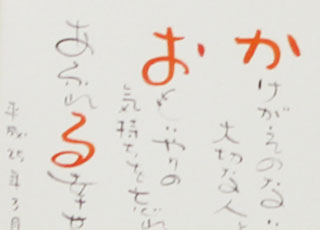 かけがえのない
大切な人と
おもいやりの
気持ちを忘れ
あふれる幸せ
平成25年3月